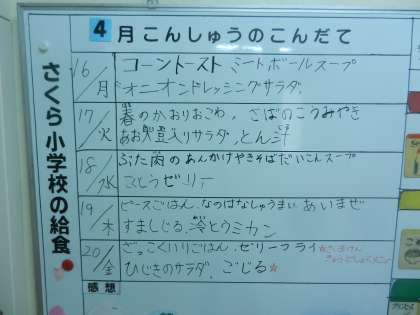 4月こんしゅうのこんだて
さくら小学校の給食
16/月
コーントースト ミートボールスープ
オニオンドレッシングサラダ
17/火
春のかおりおこわ、さばのこうみやき
サラダ、とん汁
18/水
ぶた肉のあんかけやきそばだいこんスープ
ゼリー
19/木
ピースごはん、なのはなしゅうまい あいまぜ
すましじる、冷とうミカン
20/金
ざっこくいりごはん、ゼリーフライ
ひじきのサラダ、ごじる☆
感想